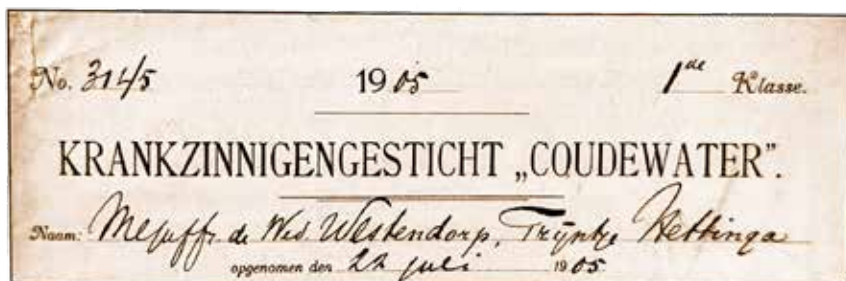 No. 3145 1905 1de Klasse.
KRANKZINNIGENGESTICHT „COUDEWATER”.
Naam: Mejuffr. de Wed Westendorp, Trijntje Hettinga
opgenomen den 22 juli 1905